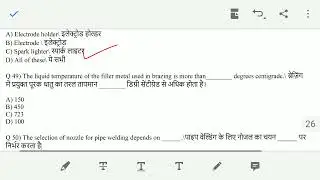 A) Electrode holder\ इलेक्ट्रोड होल्डर
B) Electrode \ इलेक्ट्रोड
C) Spark lighter\ स्पार्क लाइटर
D) All of these\ ये सभी
Q 49) The liquid temperature of the filler metal used in brazing is more than_______ degrees centigrade.\ ब्रेज़िंग
में प्रयुक्त पूरक धातु का तरल तापमान _______ डिग्री सेंटीग्रेड से अधिक होता है।
A) 150
B) 450
C) 723
D) 100
26
Q 50) The selection of nozzle for pipe welding depends on ______ /पाइप वेल्डिंग के लिए नोजल का चयन ______ पर
निर्भर करता है